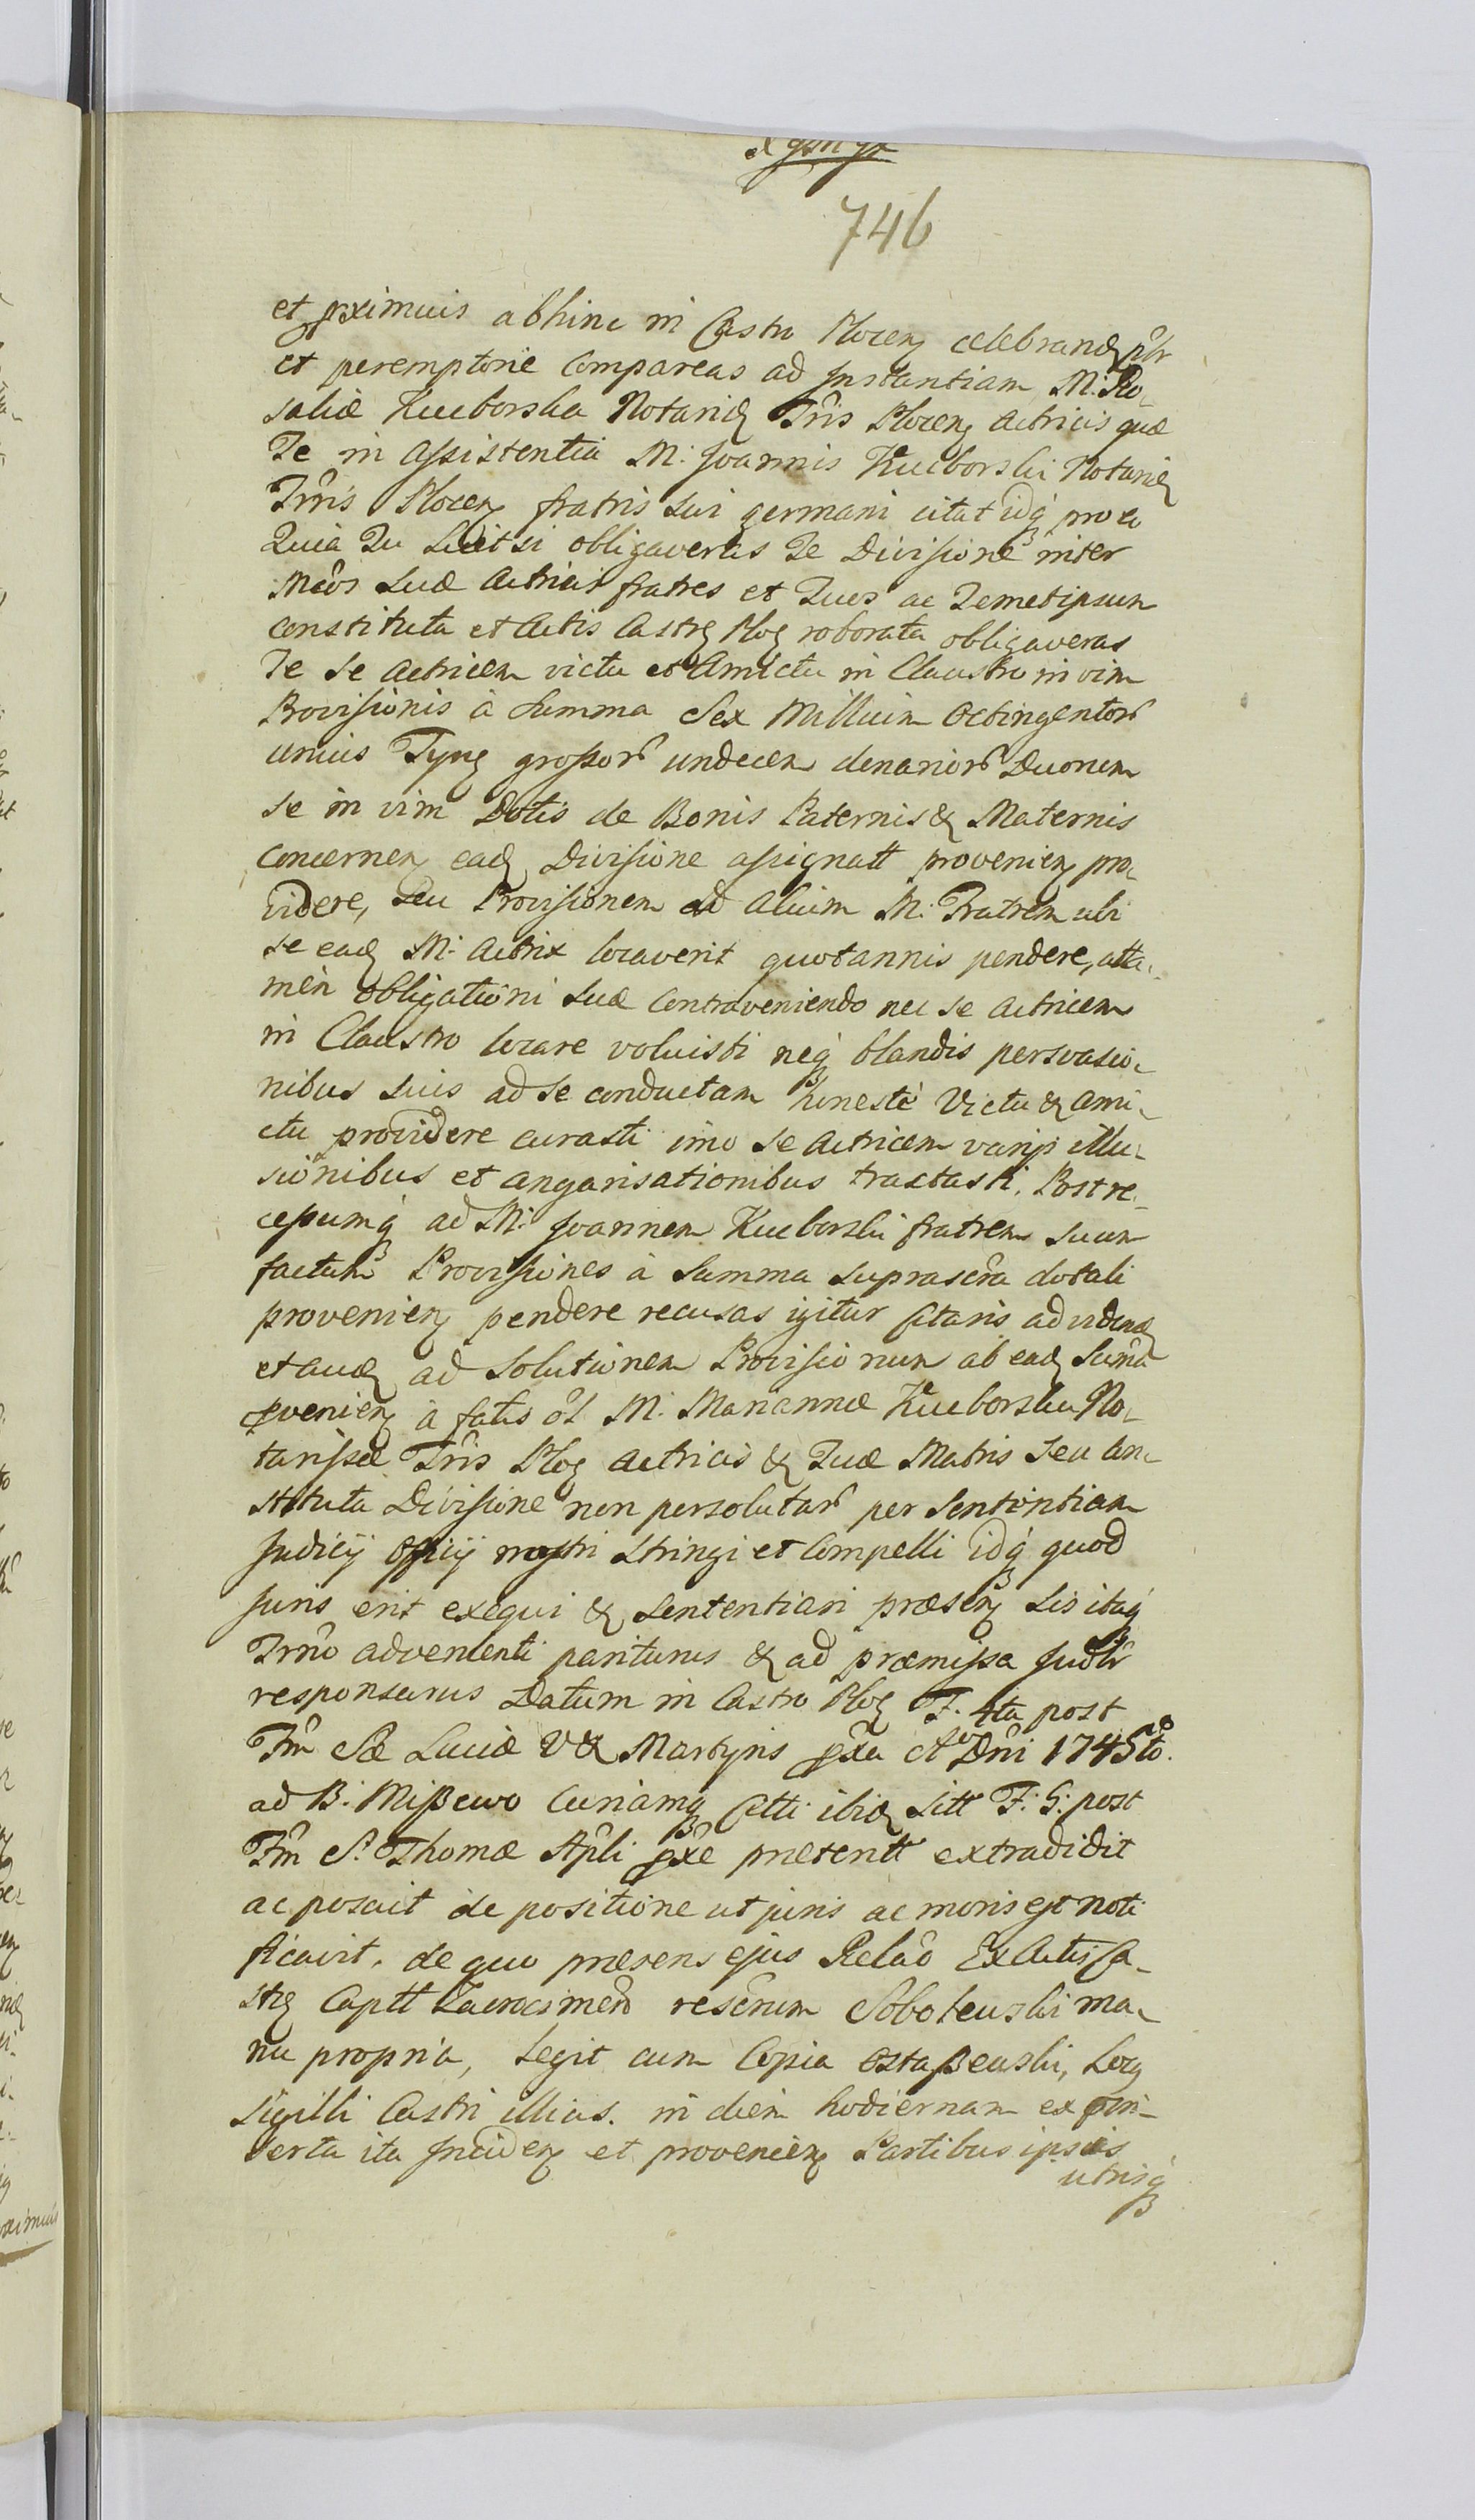 746
et proximius abhinc in Castro Plocen celebrand
et peremptorie Compareas ad Instantiam M: Ro-
saliæ Kucborska Notarid Trris Plocen actricis quæ
Te in assistentia M: Joannis Kucborski Notarid
Trris Plocen fratris sui germani citat idq pro eo
Quia Tu licet si obligaveras Te Divisione inter
Mcos suæ actricis fratres et Tuos ac Temetipsum
constituta et Actis Castren Ploc roborata obligaveras
Te se actricem victu et Amictu in Claustro in vim
Provisionis à Summa Sex Millium Octingentor
unius Tyng grossor undecem denarior Duorum
se in vim Dotis de Bonis Paternis & Maternis
concernen ead Divisione assignatt provenien pro-
videre, seu Provisionem ad alium M: Fratrem ubi
se ead M: actrix locaverit quotannis pendere, atta-
men obligationi suæ contraveniendo nec se actricem
in Claustro locare voluisti neq blandis persvasio-
nibus suis ad se conductam honestè Victu & ami-
ctu providere curasti imo se actricem varijs illu-
sionibus et angarisationibus tractasti. Post re-
cessumq ad M: Joannem Kucborski fratrem suum
factum Provisiones à Summa suprascra dotali
provenien pendere recusas igitur citaris ad videnđ
et audđ ad solutionem Provisionum ab ead Summa
pvenien à fatis ol M: Mariannæ Kucborska No-
tarissæ Trris Ploc actricis & Tuæ Matris seu con-
stituta Divisione non persolutar per Sententiam
Judicij Officij nostri stringi et Compelli idq quod
Juris erit exequi & sententiari præsen sis itaq
Trno advenienti pariturus & ad præmissa Judtr
responsurus Datum in Castro Ploc F. 4ta post
Fm Sæ Luciæ V & Martyris pxa Ao Dni 1745to.
ad B: Mißewo Curiamq Ctti ibid sitt F: 6: post
Fm S. Thomæ Apli pxe præteritt extradidit
ac posuit de positione ut juris ac moris est noti
ficavit. de quo præsens ejus Relao Ex Actis Ca-
stren Captt Zacrocimen rescrum Soboleuski ma-
nu propria, Legit cum Copia Ostaßeuski, Locg
sigilli Castri illius. in diem hodiernam ex con-
verta ita Inciden et provenien Partibus ipsis
utrisq